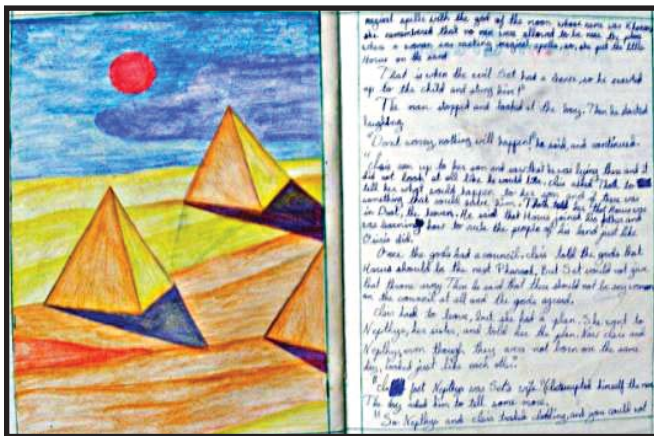 magical spells with the god of the moon whose name was Khonsu
she remembered that no men were allowed to be near the place
where a woman was casting magical spells, so, she put the little
Horus on the sand.
That is when the evil Set had a chance, so he
up to the child and stung him!"
The man stopped and looked at the boy. Then he started
laughing.
"Don't worry, nothing will happen!" he said, and continued:
" Isis ran up to her son and saw that he was lying there and it
did not look at all like he would live. Isis asked Thoth to
tell her what would happen to her son and if there was
something that could save him. Thoth told her that Horus was
in Duat, the heaven. He said that Horus joined his father and
was learning how to rule the people of his land just like
Osiris did.
Once the gods had a council. Isis told the gods that
Horus should be the next Pharaoh, but Set would not give
that throne away. Then he said that there should not be any women
on the council at all and the gods agreed.
Isis had to leave, but she had a plan. She went to
Nepthys, her sister, and told her the plan. Now Isis and
Nepthys, even though they were not born on the same
day, looked just like each other."
" but Nepthys was Set's wife." interrupted himself the man.
The boy asked him to tell some more.
"So Nepthys and Isis traded clothing, and you could not